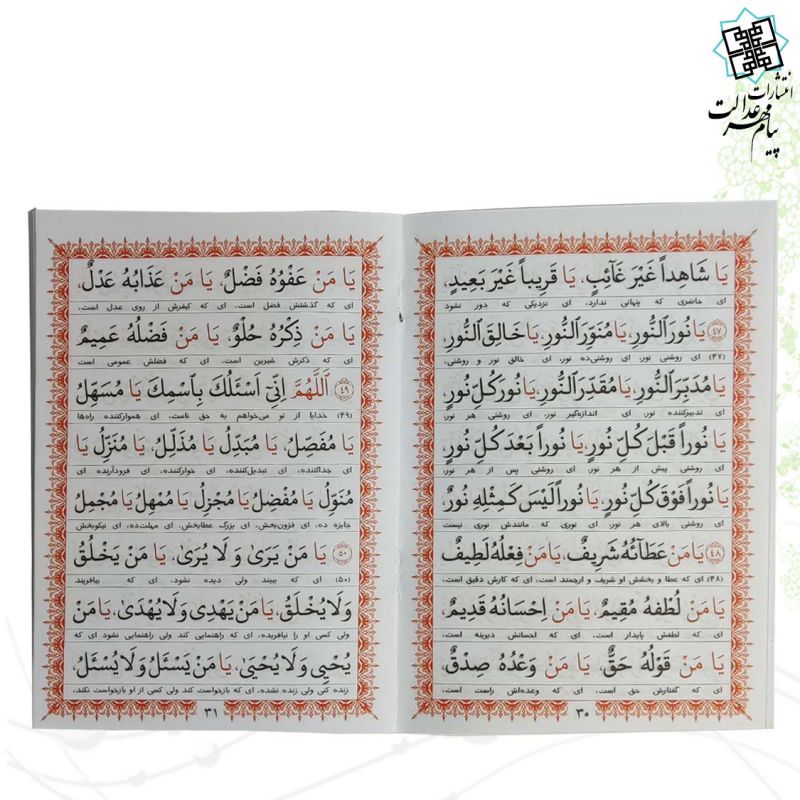 انتشارات
پیام مهر عدالت
يَا شَاهِداً غَيْرَ غَآئِبٍ، يَا قَرِيباً غَيْرَ بَعِيدٍ،
ای حاضری که پنهانی ندارد، ای نزدیکی که دور نشود
﴿۴۷﴾ يَا نُورَ النُّورِ، يَا مُنَوِّرَ النُّورِ، يَا خَالِقَ النُّورِ،
(۴۷) ای روشنی نور، ای روشنی‌ده نور، ای خالق نور و روشنی،
يَا مُدَبِّرَ النُّورِ، يَا مُقَدِّرَ النُّورِ، يَا نُورَ كُلِّ نُورٍ،
ای تدبیرکننده نور، ای اندازه‌گیر نور، ای روشنی هر نور،
يَا نُوراً قَبْلَ كُلِّ نُورٍ، يَا نُوراً بَعْدَ كُلِّ نُورٍ،
ای روشنی پیش از هر نور، ای روشنی پس از هر نور،
يَا نُوراً فَوْقَ كُلِّ نُورٍ، يَا نُوراً لَيْسَ كَمِثْلِهِ نُورٌ
ای روشنی بالای هر نور، ای نوری که مانندش نوری نیست
﴿۴۸﴾ يَا مَنْ عَطَآئُهُ شَرِيفٌ، يَا مَنْ فِعْلُهُ لَطِيفٌ
(۴۸) ای که عطا و بخشش او شریف و ارجمند است، ای که کارش دقیق است،
يَا مَنْ لُطْفُهُ مُقِيمٌ، يَا مَنْ اِحْسَانُهُ قَدِيمٌ،
ای که لطفش پایدار است، ای که احسانش دیرینه است،
يَا مَنْ قَوْلُهُ حَقٌّ، يَا مَنْ وَعْدُهُ صِدْقٌ،
ای که گفتارش حق است، ای که وعده‌اش راست است،
۳۰
يَا مَنْ عَفْوُهُ فَضْلٌ، يَا مَنْ عَذَابُهُ عَدْلٌ،
ای که گذشتش فضل است، ای که کیفرش از روی عدل است،
يَا مَنْ ذِكْرُهُ حُلْوٌ، يَا مَنْ فَضْلُهُ عَمِيمٌ
ای که ذکرش شیرین است، ای که فضلش عمومی است
﴿۴۹﴾ اَللَّهُمَّ اِنِّىٓ اَسْئَلُكَ بِاسْمِكَ يَا مُسَهِّلُ
(۴۹) خدایا از تو می‌خواهم به حق نامت، ای هموارکننده راه‌ها
يَا مُفَصِّلُ، يَا مُبَدِّلُ يَا مُذَلِّلُ، يَا مُنَزِّلُ يَا
ای جداکننده، ای تبدیل‌کننده، ای خوارکننده، ای فرودآرنده ای
مُنَوِّلُ يَا مُفْضِلُ، يَا مُجْزِلُ يَا مُمْهِلُ يَا مُجْمِلُ
جایزه ده، ای فزون‌بخش، ای بزرگ عطابخش، ای مهلت‌ده، ای نیکوبخش
﴿۵۰﴾ يَا مَنْ يَرىٰ وَ لَا يُرىٰ، يَا مَنْ يَخْلُقُ
(۵۰) ای که ببیند ولی دیده نشود، ای که بیافریند
وَ لَا يُخْلَقُ، يَا مَنْ يَهْدِى وَ لَا يُهْدىٰ، يَا مَنْ
ولی کسی او را نیافریده، ای که راهنمایی کند ولی راهنمایی نشود ای که
يُحْيِى وَ لَا يُحْيىٰ، يَا مَنْ يَسْئَلُ وَ لَا يُسْئَلُ،
زنده کنی ولی زنده نشده، ای که بازخواست کند ولی کسی از او بازخواست نکند،
۳۱